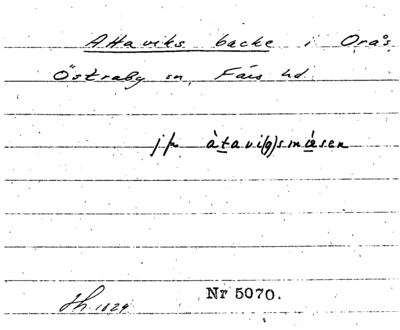 Attaviks backe i Orås,
Östraby sn, Färs hd.
jfr àtavi(g)smàsen
Nr 5070.